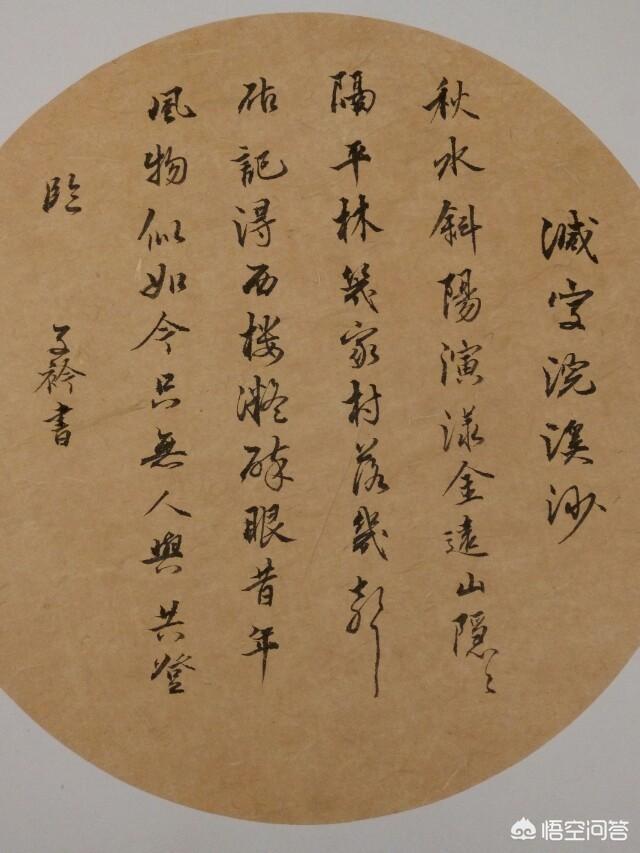 減字浣溪沙
秋水斜陽演漾金遠山隱〻
隔平林幾家村落幾聲
砧記得西楼凝醉眼昔年
風物似如今只無人與共登
臨
子衿書
悟空问答